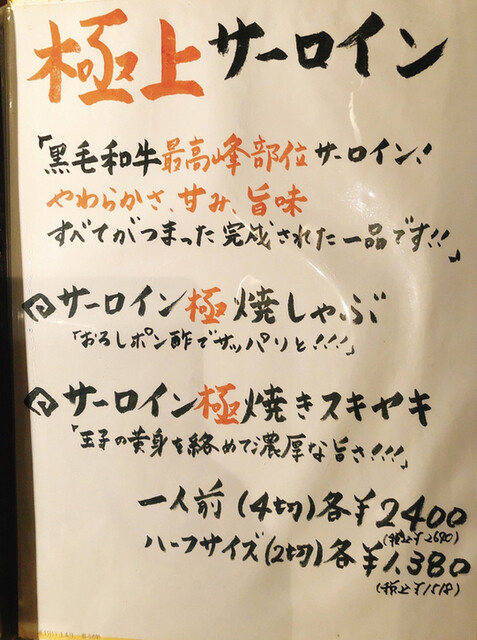 極上サーロイン
「黒毛和牛最高峰部位サーロイン!
やわらかさ、甘み、旨味
すべてがつまった完成された一品です!!」
サーロイン極焼しゃぶ
「おろしポン酢でサッパリと!!!」
サーロイン極焼きスキヤキ
「玉子の黄身を絡めて濃厚な旨さ!!!」
一人前(4切)各¥2400
(税込¥2640)
ハーフサイズ(2切)各¥1,380
(税込¥1518)